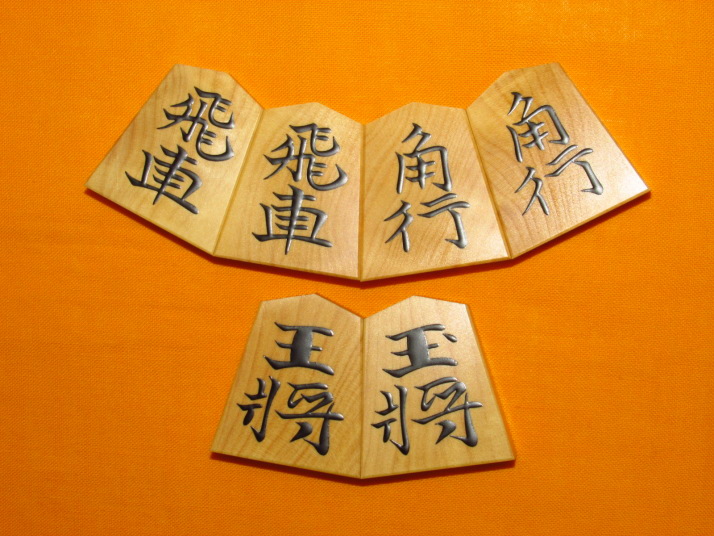 飛車
飛車
角行
角行
王將
玉將